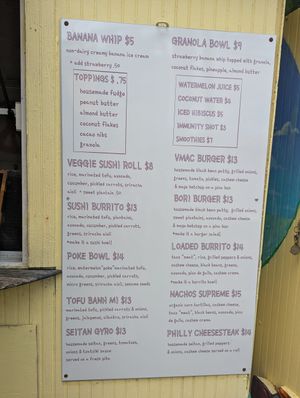 BANANA WHIP $5
non-dairy creamy banana ice cream
+ add strawberry .50
TOPPINGS $.75
housemade fudge
peanut butter
almond butter
coconut flakes
cacao nibs
granola
VEGGIE SUSHI ROLL $8
rice, marinated tofu, avocado,
cucumber, pickled carrots, sriracha
aioli + sweet plantain .50
SUSHI BURRITO $13
rice, marinated tofu, plantains,
avocado, cucumber, pickled carrots,
greens, sriracha aioli
*make it a sushi bowl!
POKE BOWL $14
rice, watermelon "poke" marinated tofu,
avocado, cucumber, pickled carrots,
micro greens, sriracha aioli, sesame seeds
TOFU BANH MI $13
marinated tofu, pickled carrots & onions,
greens, jalapenos, cilantro, sriracha aioli
SEITAN GYRO $13
housemade seitan, greens, tomatoes,
onions & tzatziki sauce
served on a fresh pita
GRANOLA BOWL $9
strawberry banana whip topped with granola,
coconut flakes, pineapple, almond butter
WATERMELON JUICE $5
COCONUT WATER $6
ICED HIBISCUS $5
IMMUNITY SHOT $3
SMOOTHIES $7
VMAC BURGER $13
housemade black bean patty, grilled onions,
greens, tomato, pickles, cashew cheese
& mojo ketchup on a plain bun
BORI BURGER $13
housemade black bean patty, grilled onions,
sweet plantains, avocado, cashew cheese
& mojo ketchup on a plain bun
*make it a burger salad!
LOADED BURRITO $14
taco "meat", rice, grilled peppers & onions,
cashew cheese, black beans, greens,
avocado, pico de gallo, cashew crema
*make it a burrito bowl!
NACHOS SUPREME $15
organic corn tortillas, cashew cheese,
taco "meat", black beans, greens, avocado,
pico de gallo, cashew crema
PHILLY CHEESESTEAK $14
housemade seitan, grilled peppers
& onions, cashew cheese served on a roll